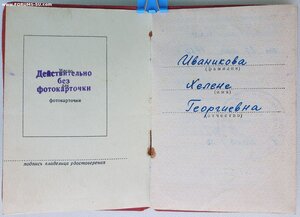 www.FORUMS-SU.com
Действительно
без
фотокарточки
фотокарточки
подпись владельца удостоверения
Иваникова
(фамилия)
Хелене
(имя)
Георгиевна
(отчество)